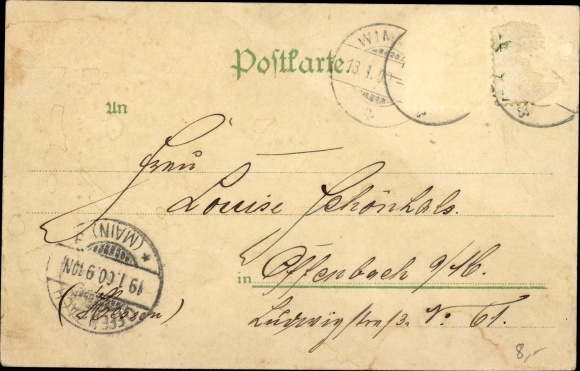 Postkarte
WIM
18.1.0
An
Frau
Louise Schönhals.
in Offenbach a/M.
(Hessen)
Ludwigstraße No 61.
(MAIN)
19.1.00.9-10N
8,-